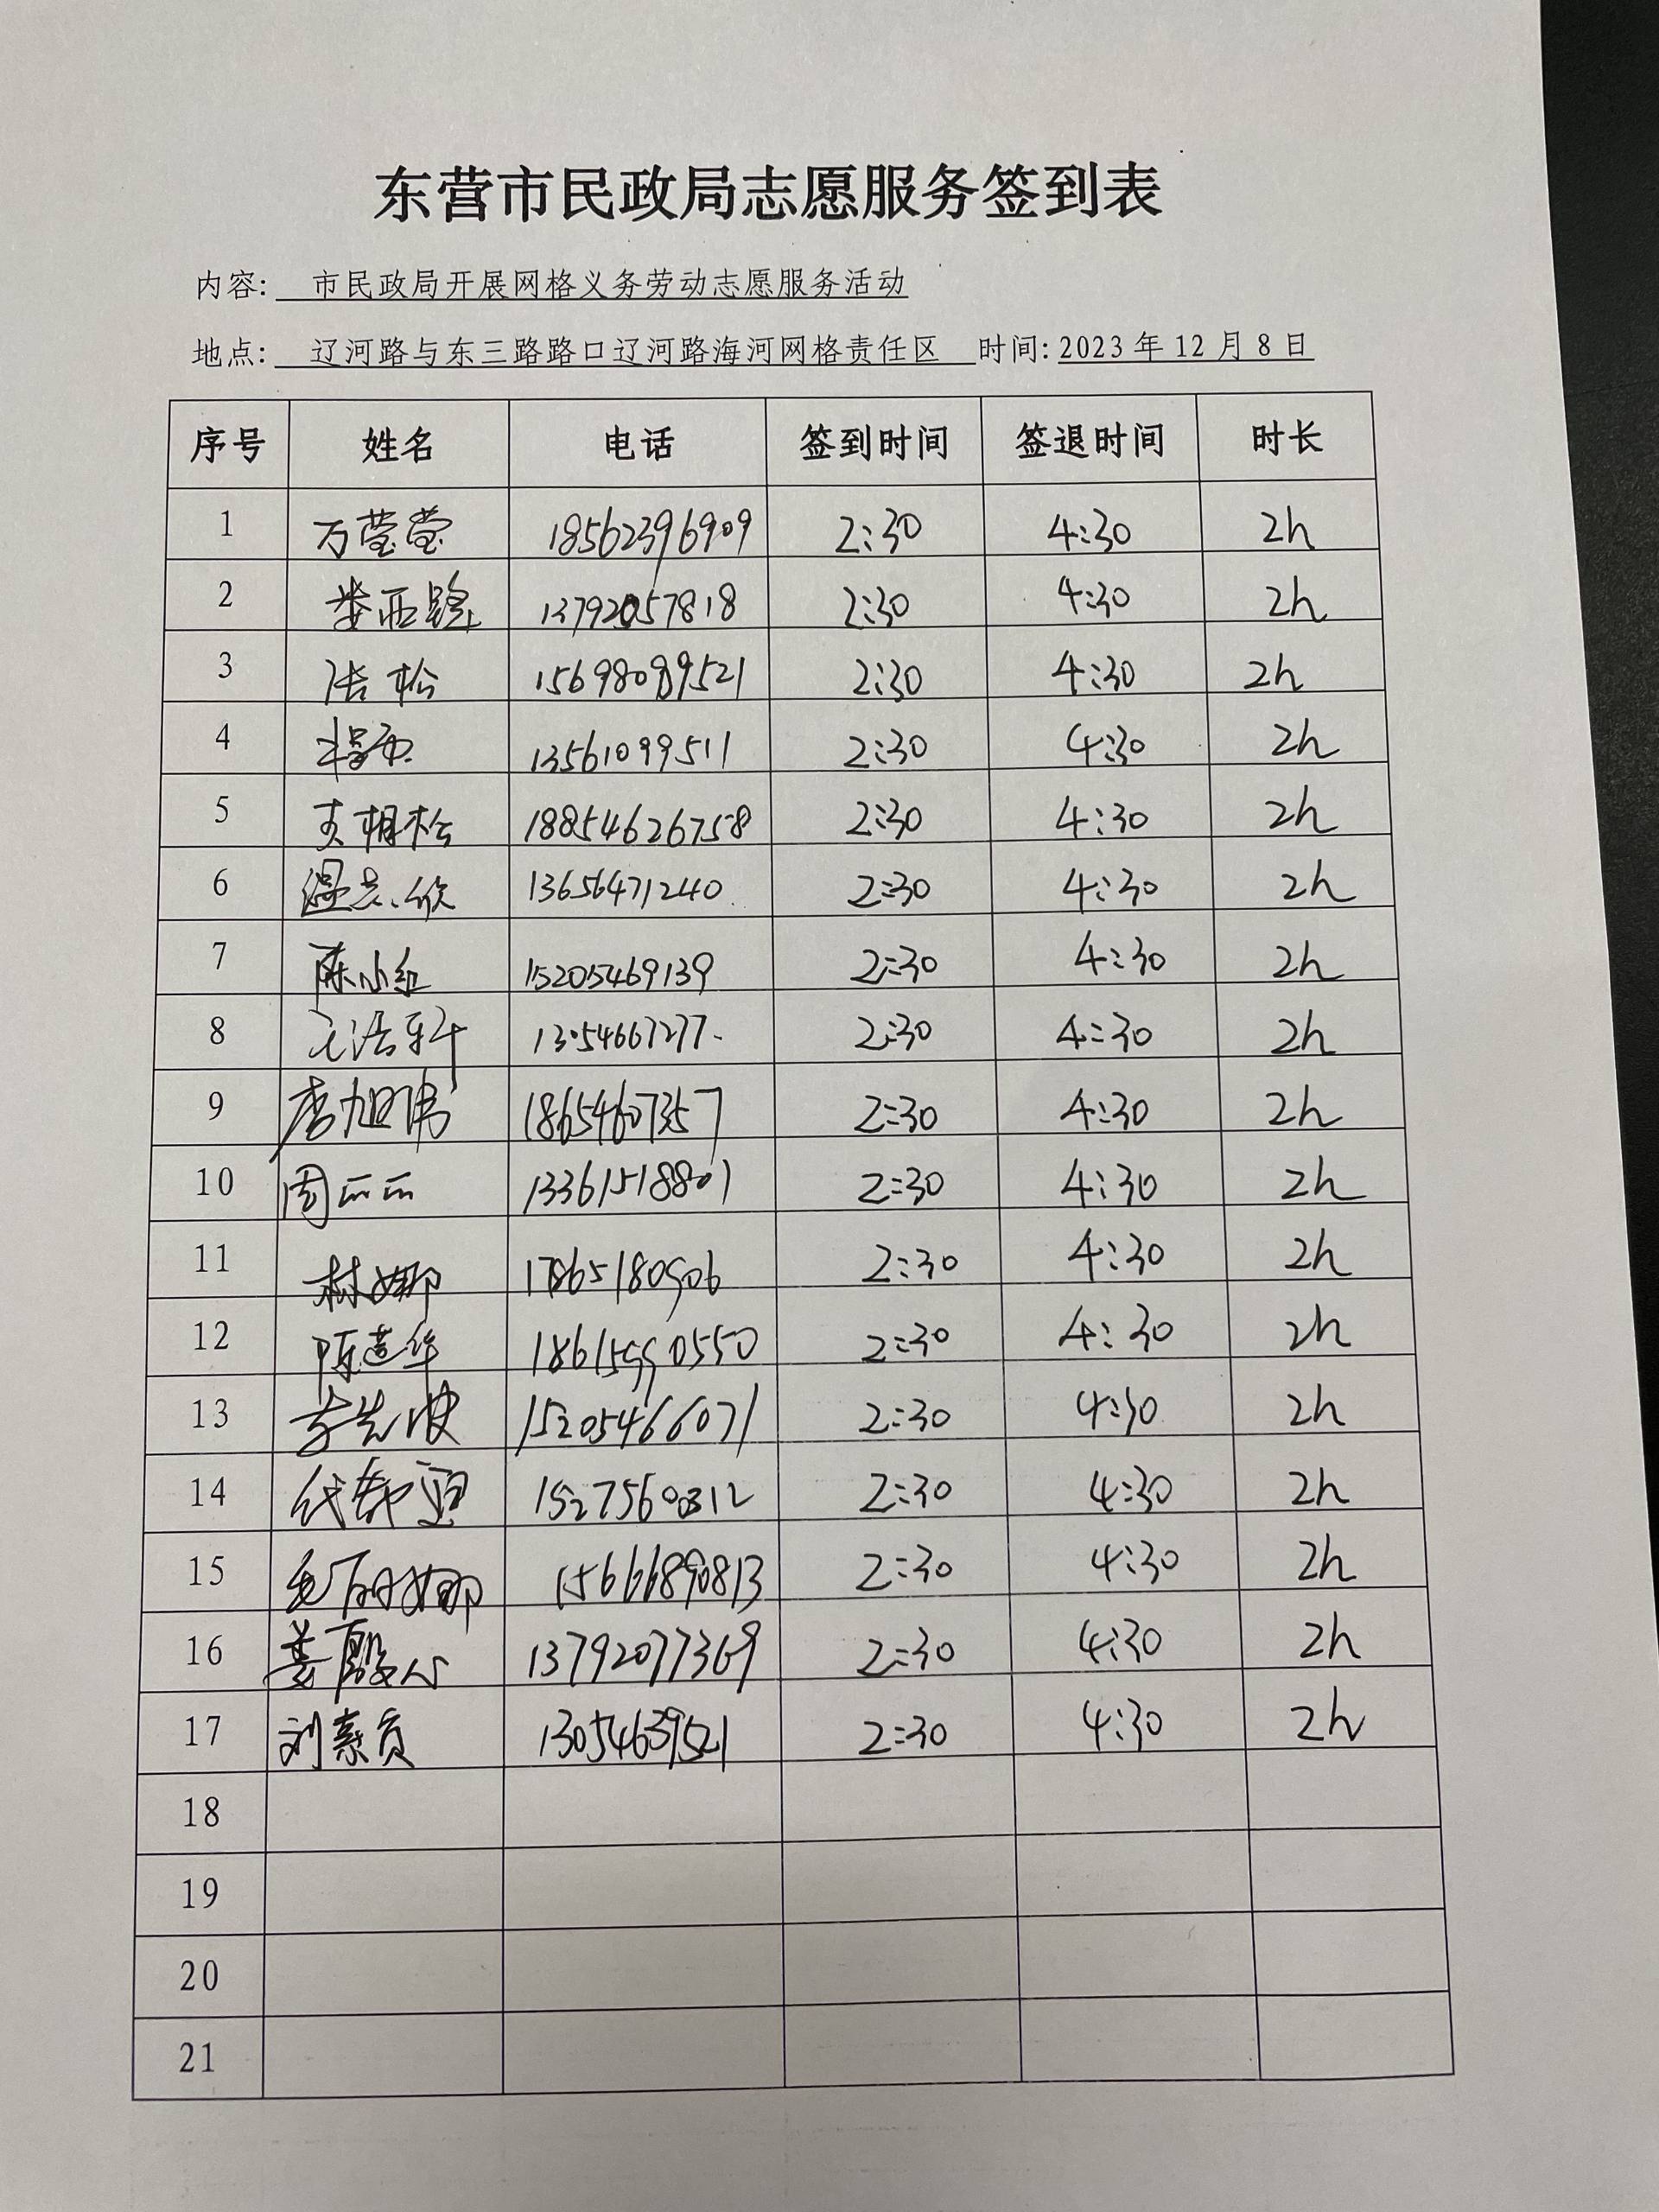 东营市民政局志愿服务签到表
内容: 市民政局开展网格义务劳动志愿服务活动
地点: 辽河路与东三路路口辽河路海河网格责任区 时间: 2023 年 12 月 8 日
序号 姓名 电话 签到时间 签退时间 时长
1 万莹莹 18562396909 2:30 4:30 2h
2 13792057818 2:30 4:30 2h
3 张松 15698089521 2:30 4:30 2h
4 13561099511 2:30 4:30 2h
5 18854626758 2:30 4:30 2h
6 13656471240 2:30 4:30 2h
7 陈小红 15205469139 2:30 4:30 2h
8 13054667277 2:30 4:30 2h
9 李旭伟 18654607357 2:30 4:30 2h
10 周丽丽 13361518801 2:30 4:30 2h
11 林娜 17865180906 2:30 4:30 2h
12 陈莲华 18615990550 2:30 4:30 2h
13 15205466071 2:30 4:30 2h
14 2:30 4:30 2h
15 毛丽娜 15666890813 2:30 4:30 2h
16 13792077369 2:30 4:30 2h
17 刘素贞 13054639521 2:30 4:30 2h
18
19
20
21